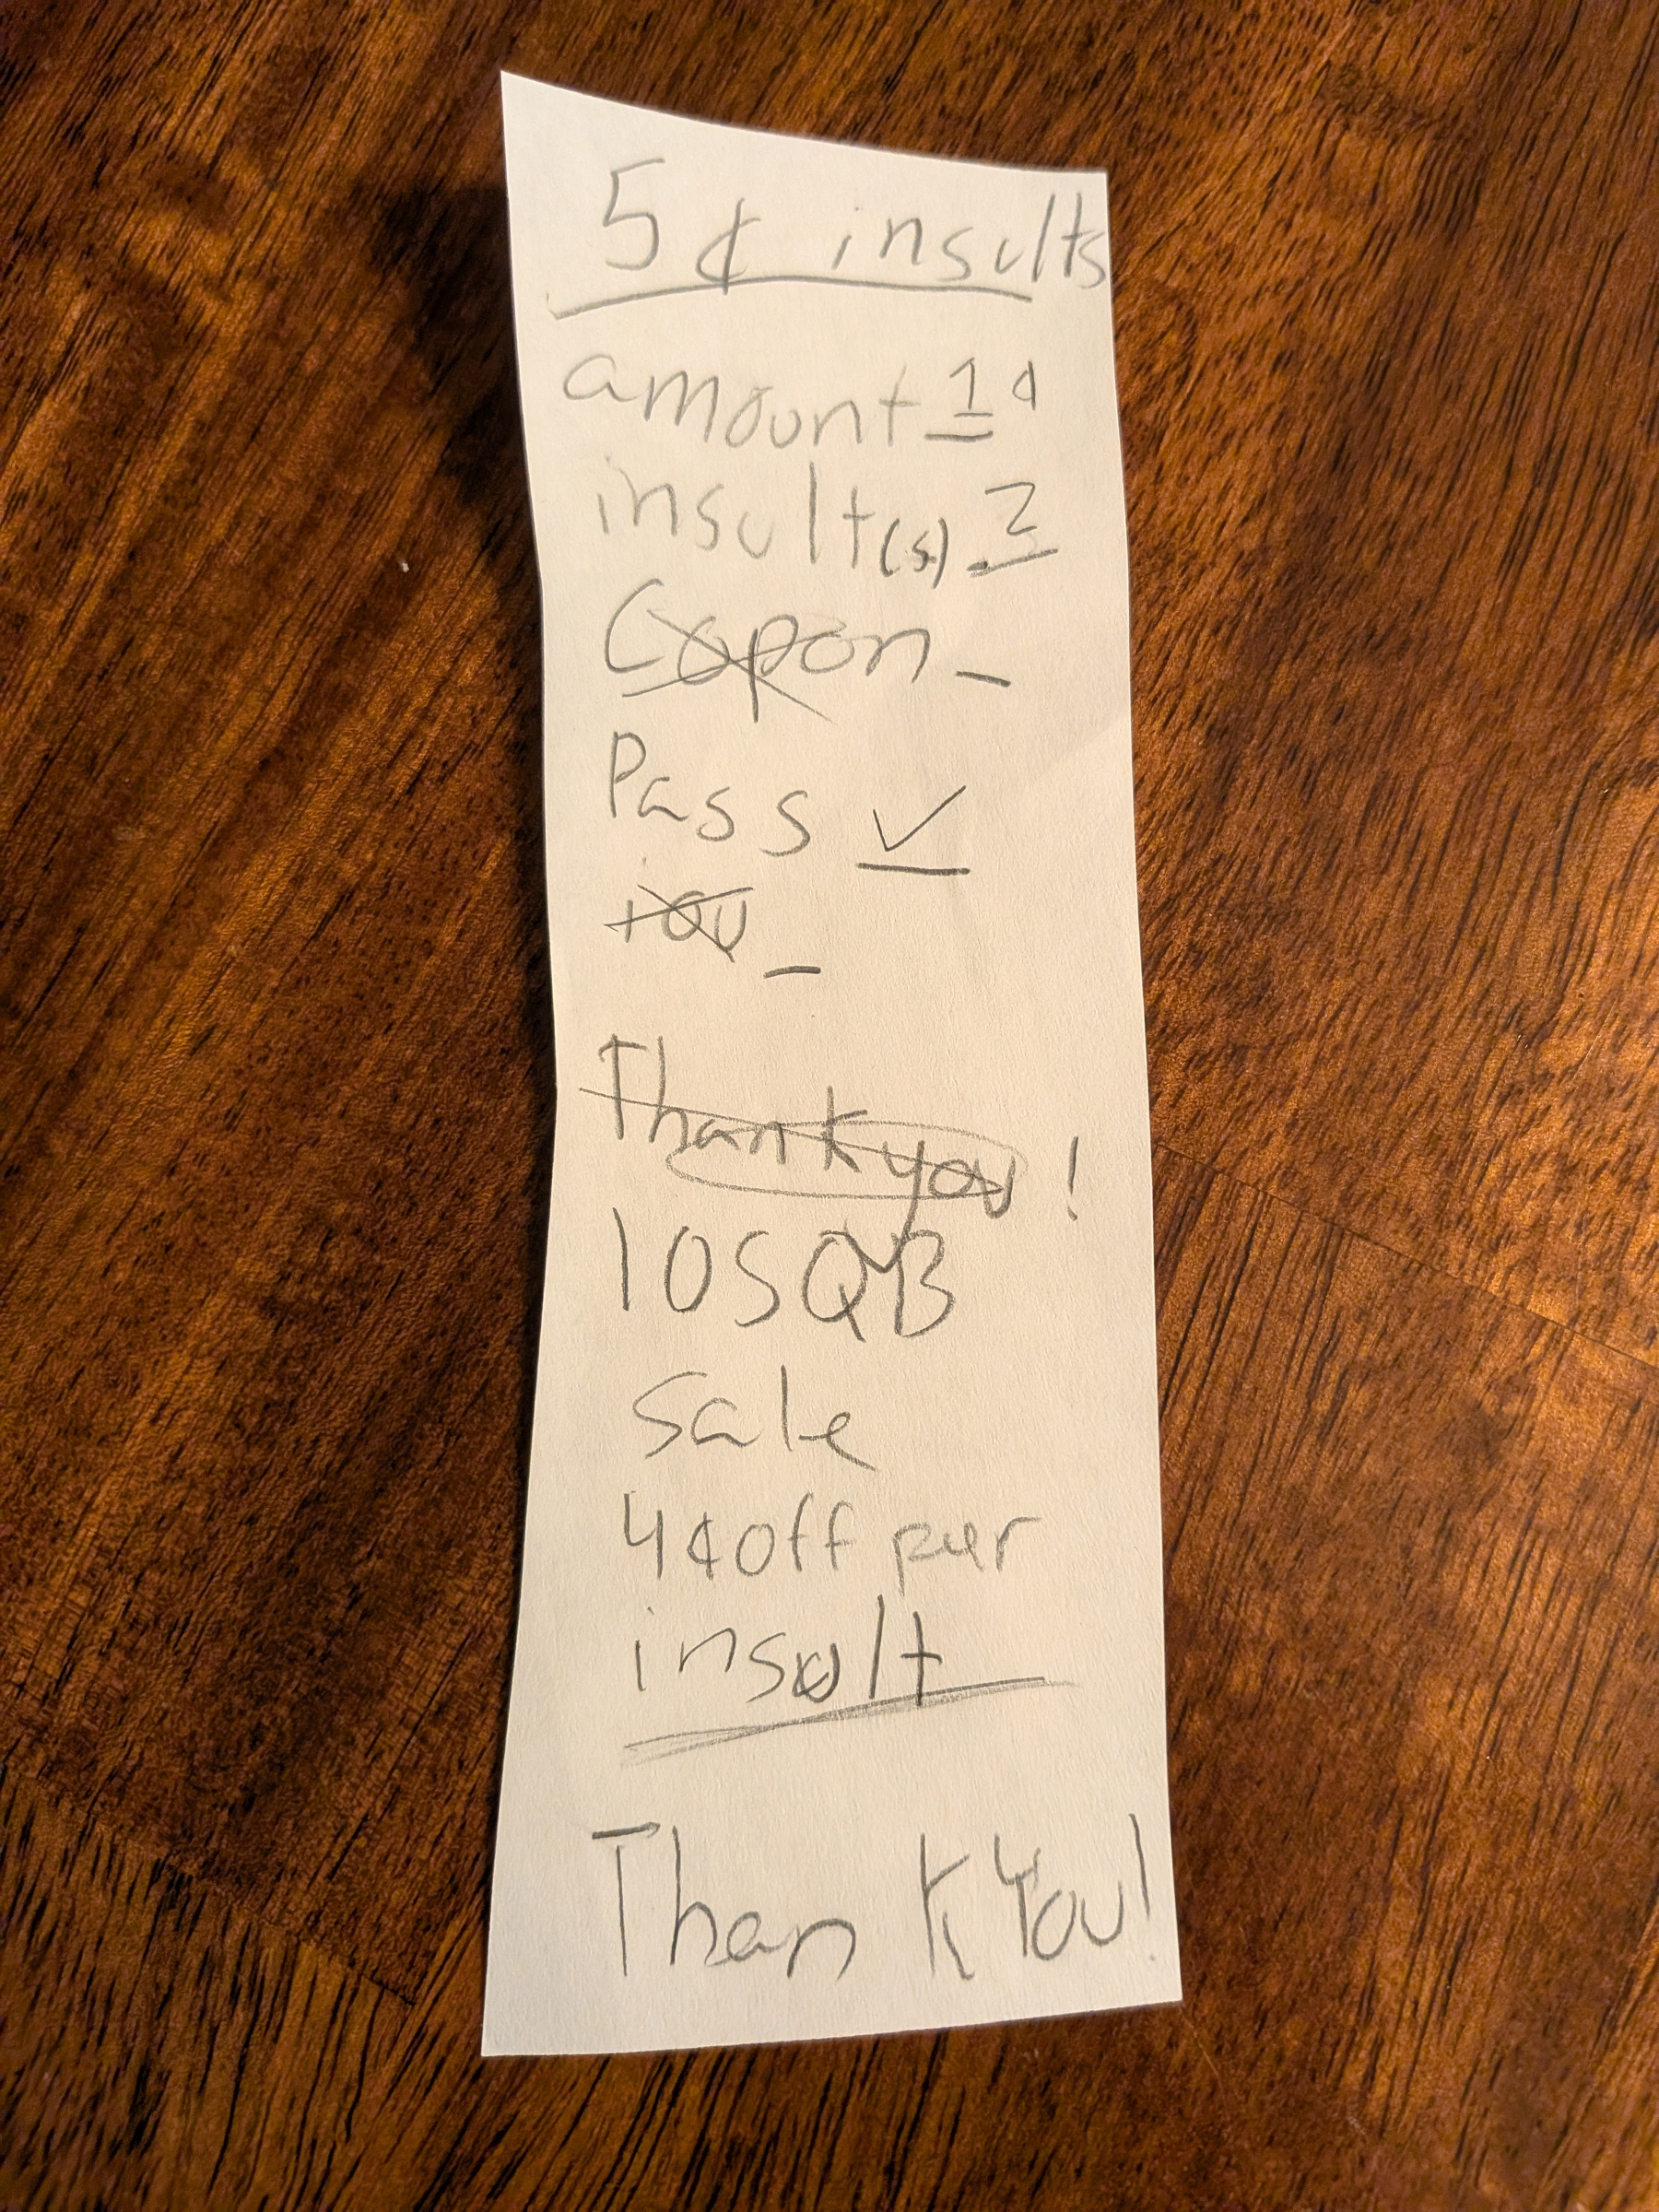 5¢ insults
amount 1¢
insult(s) 2
Copon _
Pass ✓
iou _
Thank you !
10SQB
Sale
4¢ off per
insult
Thank You!